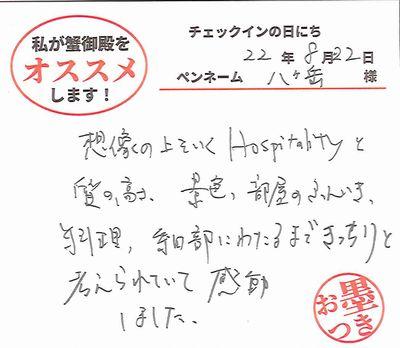 私が蟹御殿を
オススメ
します！
チェックインの日にち
22年8月22日
ペンネーム 八ヶ岳 様
想像の上をいくHospitalityと
質の高さ、景色、部屋のふんいき、
料理、細部にわたるまできっちりと
考えられていて感動
しました。
墨
おつき